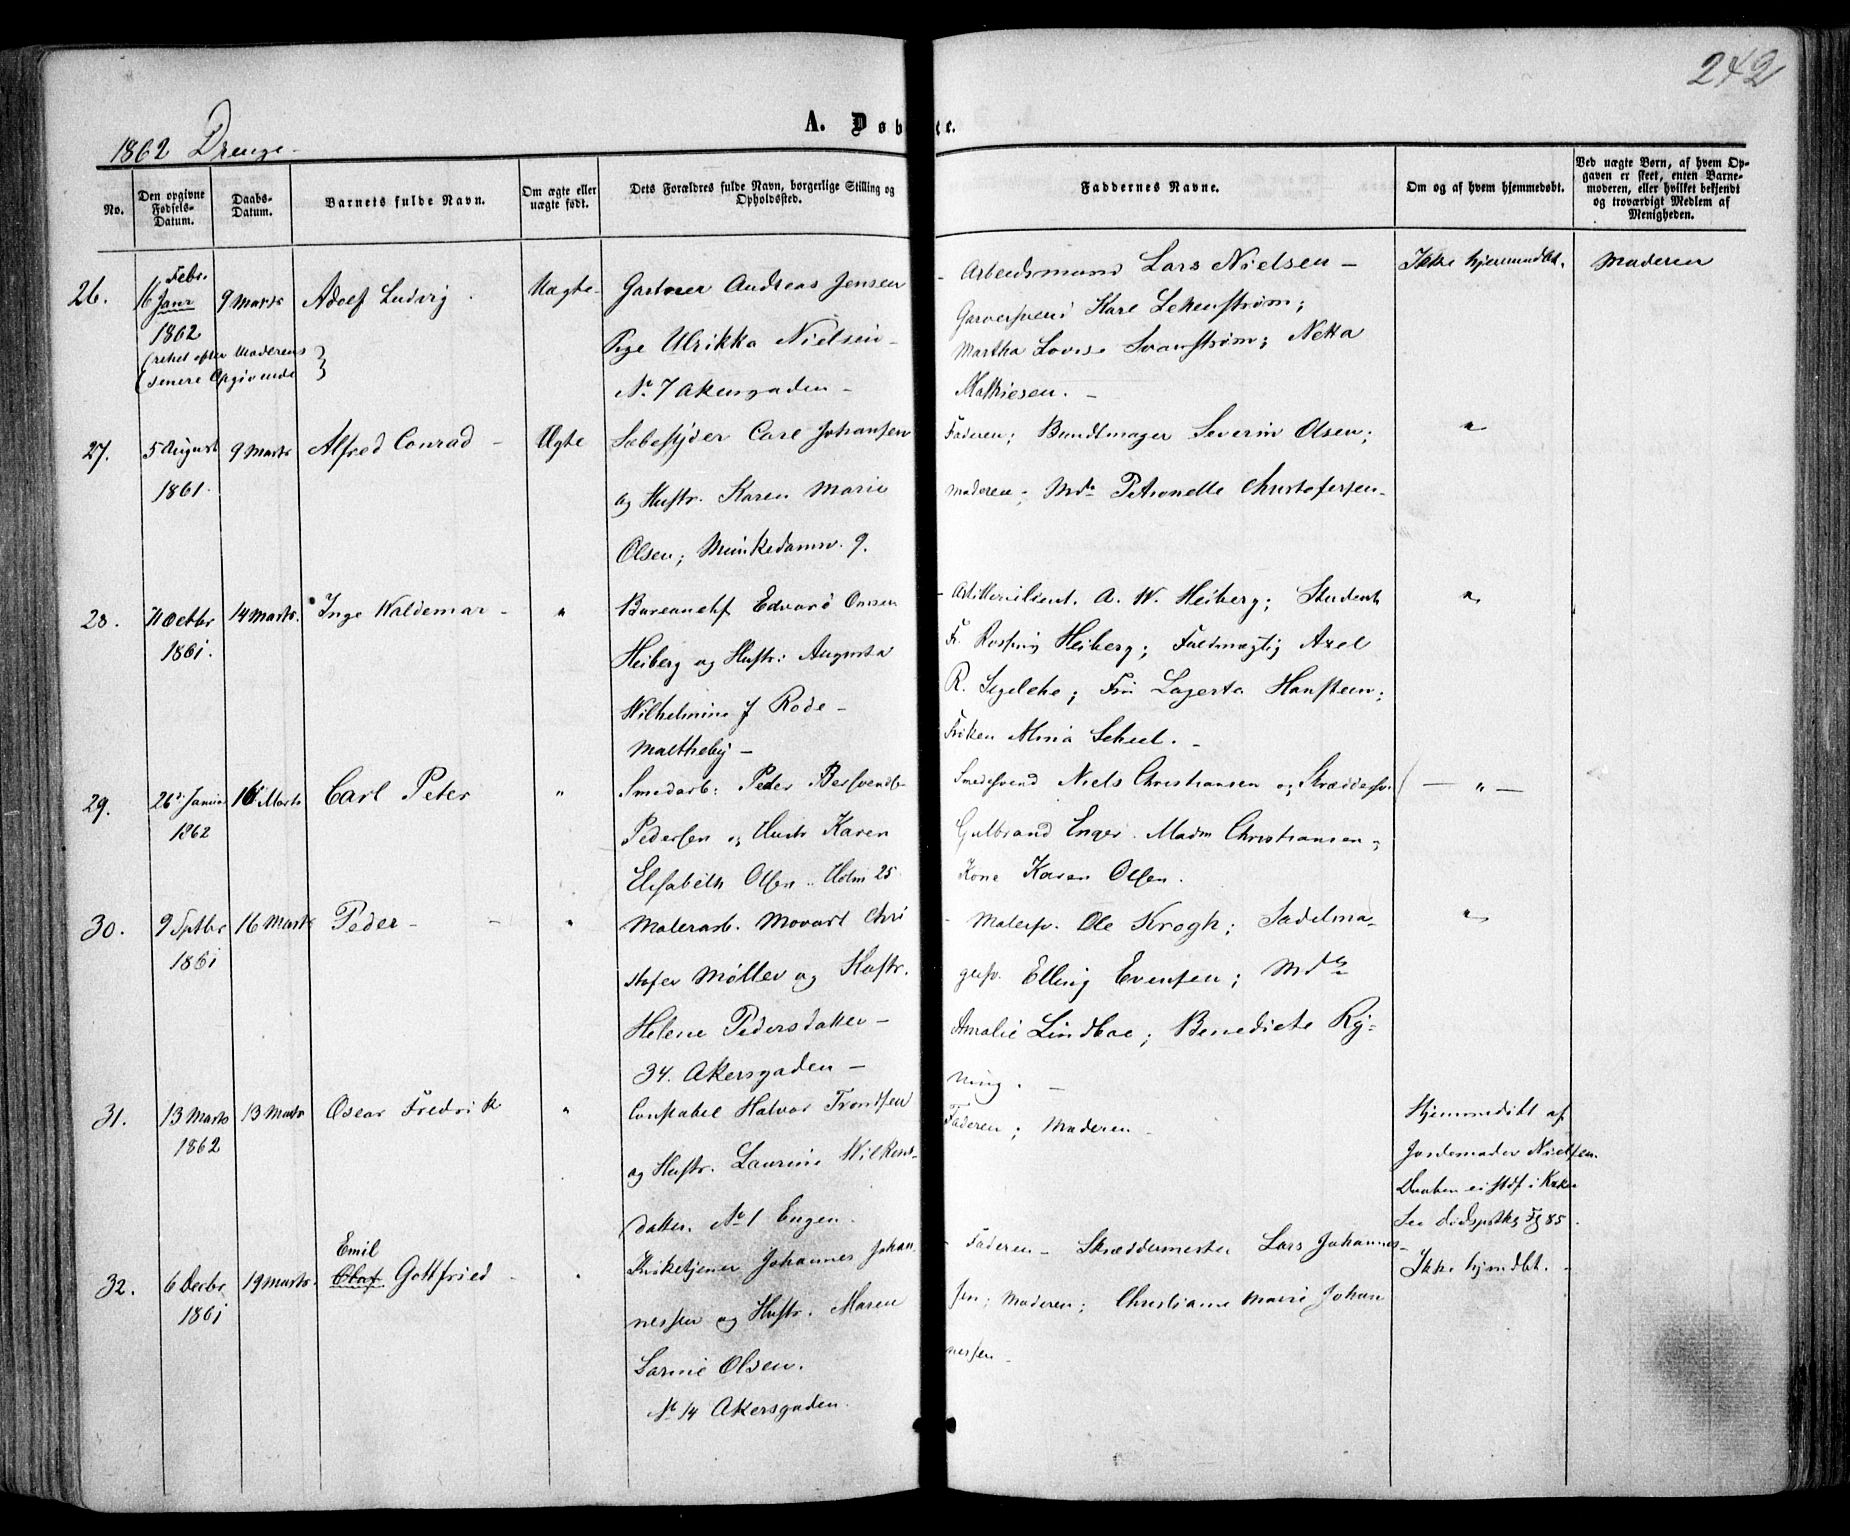 242
A. Døbte.
1862 Drenge
No.
Den opgivne Fødsels-Datum.
Daabs-Datum.
Barnets fulde Navn.
Om ægte eller uægte født.
Dets Forældres fulde Navn, borgerlige Stilling og Opholdssted.
Faddernes Navne.
Om og af hvem hjemmedøbt.
Ved uægte Børn, af hvem Opgaven er skeet, enten Barnemoderen, eller hvilket bekjendt og troværdigt Medlem af Menigheden.
26.
16 Febr.
Janr
1862
(rettet efter Moderens
senere Opgivende)
9 Marts
Adolf Ludvig
Uægte
Gartner Andreas Jensen
Pige Ulrikka Nielsen
No 7 Akersgaden
Arbeidsmand Lars Nielsen
Garversvend Karl
Martha Lovise Svanstrøm; Netta
Mathiesen.
Ikke hjemmedbt.
Moderen
27.
5 August
1861.
9 Marts
Alfred Conrad
Ægte
Sæbesyder Carl Johansen
og Hustr. Karen Marie
Olsen; Munkedamsv. 9.
Faderen; Bundtmager Severin Olsen;
Moderen; Mde Petronelle Christofersen
"
28.
Octbr
1861.
14 Marts.
Inge Waldemar
"
Bureauchf Edvard Omsen
Heiberg og Hustr: Augusta
Wilhelmine J Rode
Maltheby
Artillerilieut. A. W. Heiberg; Student
Fr. Rosting Heiberg; Fuldmægtig Axel
R. Segelcke; Fru Lagerta Hansteen;
Frøken Mina Scheel.
"
29.
26de Januar
1862
16 Marts
Carl Peter
"
Smedarb: Peder Bersvends
Pedersen og Hustr Karen
Elisabeth Olsen. Holm 25
Smedesvend Niels Christiansen og Skræddersv.
Gulbrand Enger. Madm Christiansen
Kone Karen Olsen.
— " —
30.
9 Septbr
1861
16 Marts
Peder
"
Malerarb. Movart Chri
stofer Møller og Hustr.
Helene Pedersdatter
34. Akersgaden
Malersv. Ole Krogh; Sadelma-
gersv. Elling Evensen; Mde
Amalie Lindboe; Benedicte Ry-
ning.
"
31.
13 Marts
1862
13 Marts
Oscar Fredrik
"
Constabel Halvor Trondsen
og Hustr. Laurine Wilkens-
datter. No 1 Engen.
Faderen; Moderen
Hjemmedøbt af
Jordemoder Nielsen.
Daaben ei stdf i Kirke
See dødsprotk Fg 85.
32.
6 Decbr
1861
19 Marts
Emil
Olaf Gottfried
"
Kirketjener Johannes Johan
nessen og Hustr. Maren
Sørine Olsen.
No 14 Akersgaden.
Faderen — Skræddermester Lars Johannes-
sen; Moderen; Christiane Marie Johan
nessen
Ikke hjemdbt.